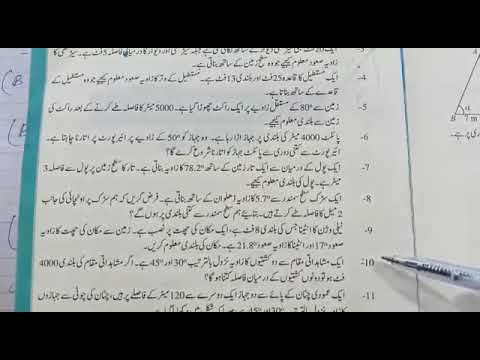 زاویہ صعود معلوم کیجیے جو وہ سطح زمین کے ساتھ بناتی ہے۔
4- ایک مستطیل کا قاعدہ 25 فٹ اور بلندی 13 فٹ ہے۔ مستطیل کے وتر کا زاویہ صعود معلوم کیجیے جو وہ مستطیل کے
قاعدے کے ساتھ بناتا ہے۔
5- زمین سے °80 کے مستقل زاویے پر ایک راکٹ چھوڑا گیا ہے۔ 5000 میٹر کا فاصلہ طے کرنے کے بعد راکٹ کی
زمین سے بلندی معلوم کیجیے۔
6- پائلٹ 4000 میٹر کی بلندی پر جہاز اڑا رہا ہے۔ وہ جہاز کو °50 کے زاویے پر ائیر پورٹ پر اتارنا چاہتا ہے۔
ائیر پورٹ سے کتنی دوری سے پائلٹ جہاز کو اتارنا شروع کرے گا؟
7- ایک پول کے درمیان سے ایک تار زمین کے ساتھ °78.2 کا زاویہ بناتی ہے۔ تار کا سطح زمین پر پول سے فاصلہ 3
میٹر ہے۔ پول کی بلندی معلوم کیجیے۔
8- ایک سڑک سطح سمندر سے °5.7 کا زاویہ ڈھلوان کے ساتھ بناتی ہے۔ فرض کریں کہ ہم سڑک پر اونچائی کی جانب
2 میل کا فاصلہ طے کرتے ہیں۔ بتائیے ہم سطح سمندر سے کتنی بلندی پر ہوں گے؟
9- ٹیلی ویژن کا انٹینا جس کی بلندی 8 فٹ ہے، ایک مکان کی چھت پر نصب ہے۔ زمین سے مکان کی چھت کا زاویہ
صعود °17 اور انٹینا کا زاویہ صعود °21.8 ہے۔ مکان کی بلندی معلوم کریں۔
10- ایک مشاہداتی مقام سے دو کشتیوں کا زاویہ نزول بالترتیب °30 اور °45 ہے۔ اگر مشاہداتی مقام کی بلندی 4000
فٹ ہو تو دونوں کشتیوں کے درمیان فاصلہ کتنا ہوگا؟
11- ایک عمودی چٹان کے پائے سے دو جہاز ایک دوسرے سے 120 میٹر کے فاصلے پر ہیں، چٹان کی چوٹی سے جہازوں
α
B 7 m